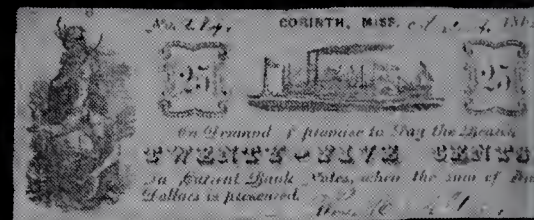 No. CORINTH, MISS. 186
25 25
On Demand I promise to Pay the Bearer
TWENTY-FIVE CENTS
In Current Bank Notes, when the sum of
Dollars is presented.